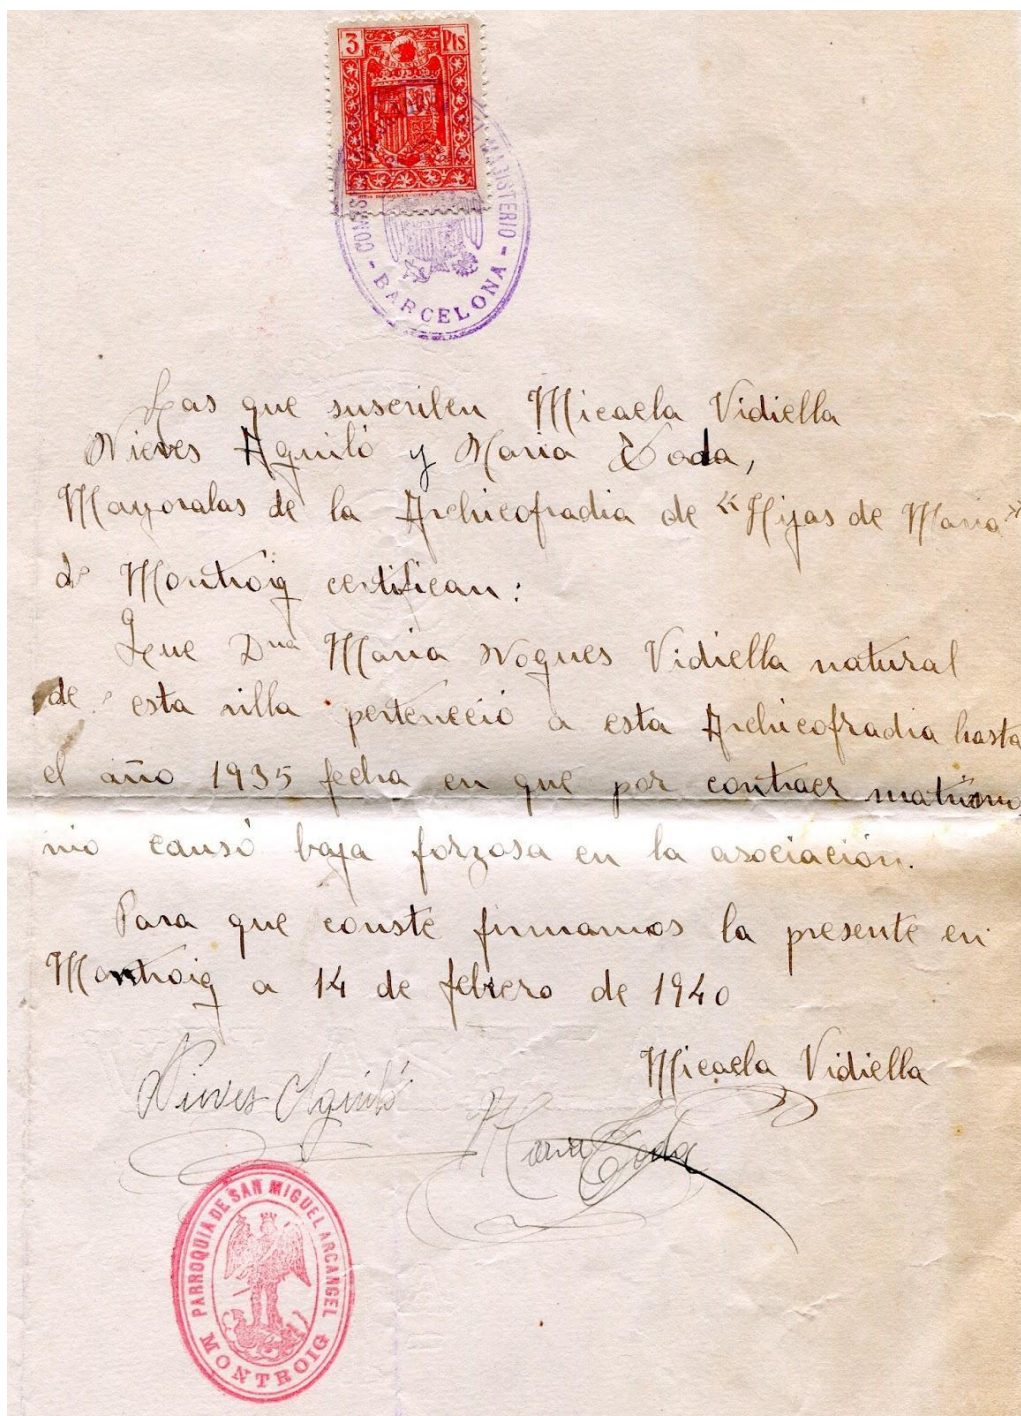 3 Pts
MAGISTERIO - BARCELONA -
Las que suscriben Micaela Vidiella
Nieves Aguiló y Maria Toda,
Mayoralas de la Archicofradia de "Hijas de Maria"
de Montroig certifican:
Que Dna Maria Nogues Vidiella natural
de esta villa perteneció a esta Archicofradia hasta
el año 1935 fecha en que por contraer matrimo
nio causó baja forzosa en la asociación.
Para que conste firmamos la presente en
Montroig a 14 de febrero de 1940
Micaela Vidiella
Nieves Aguiló
Maria Toda
PARROQUIA DE SAN MIGUEL ARCANGEL
MONTROIG